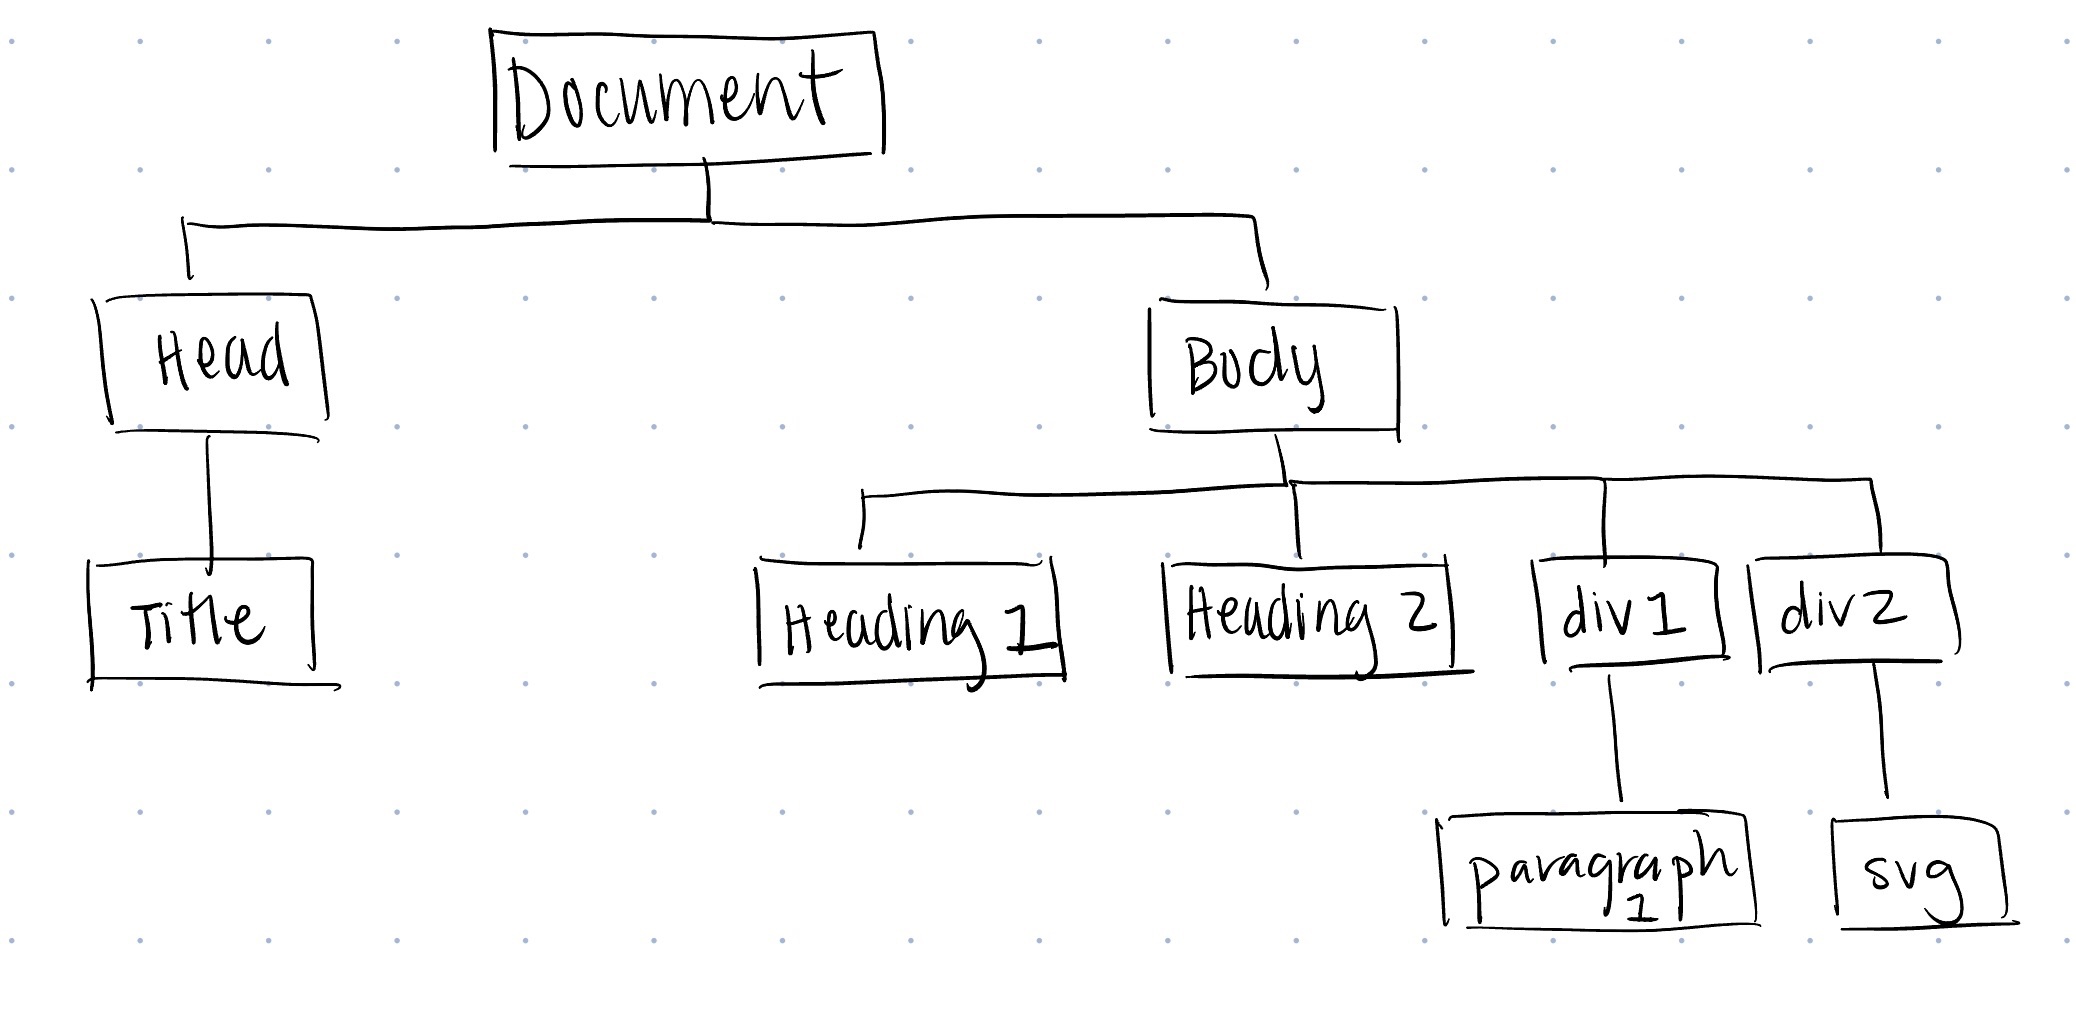 Document
Head
Body
Title
Heading 1
Heading 2
div 1
div 2
paragraph
1
svg